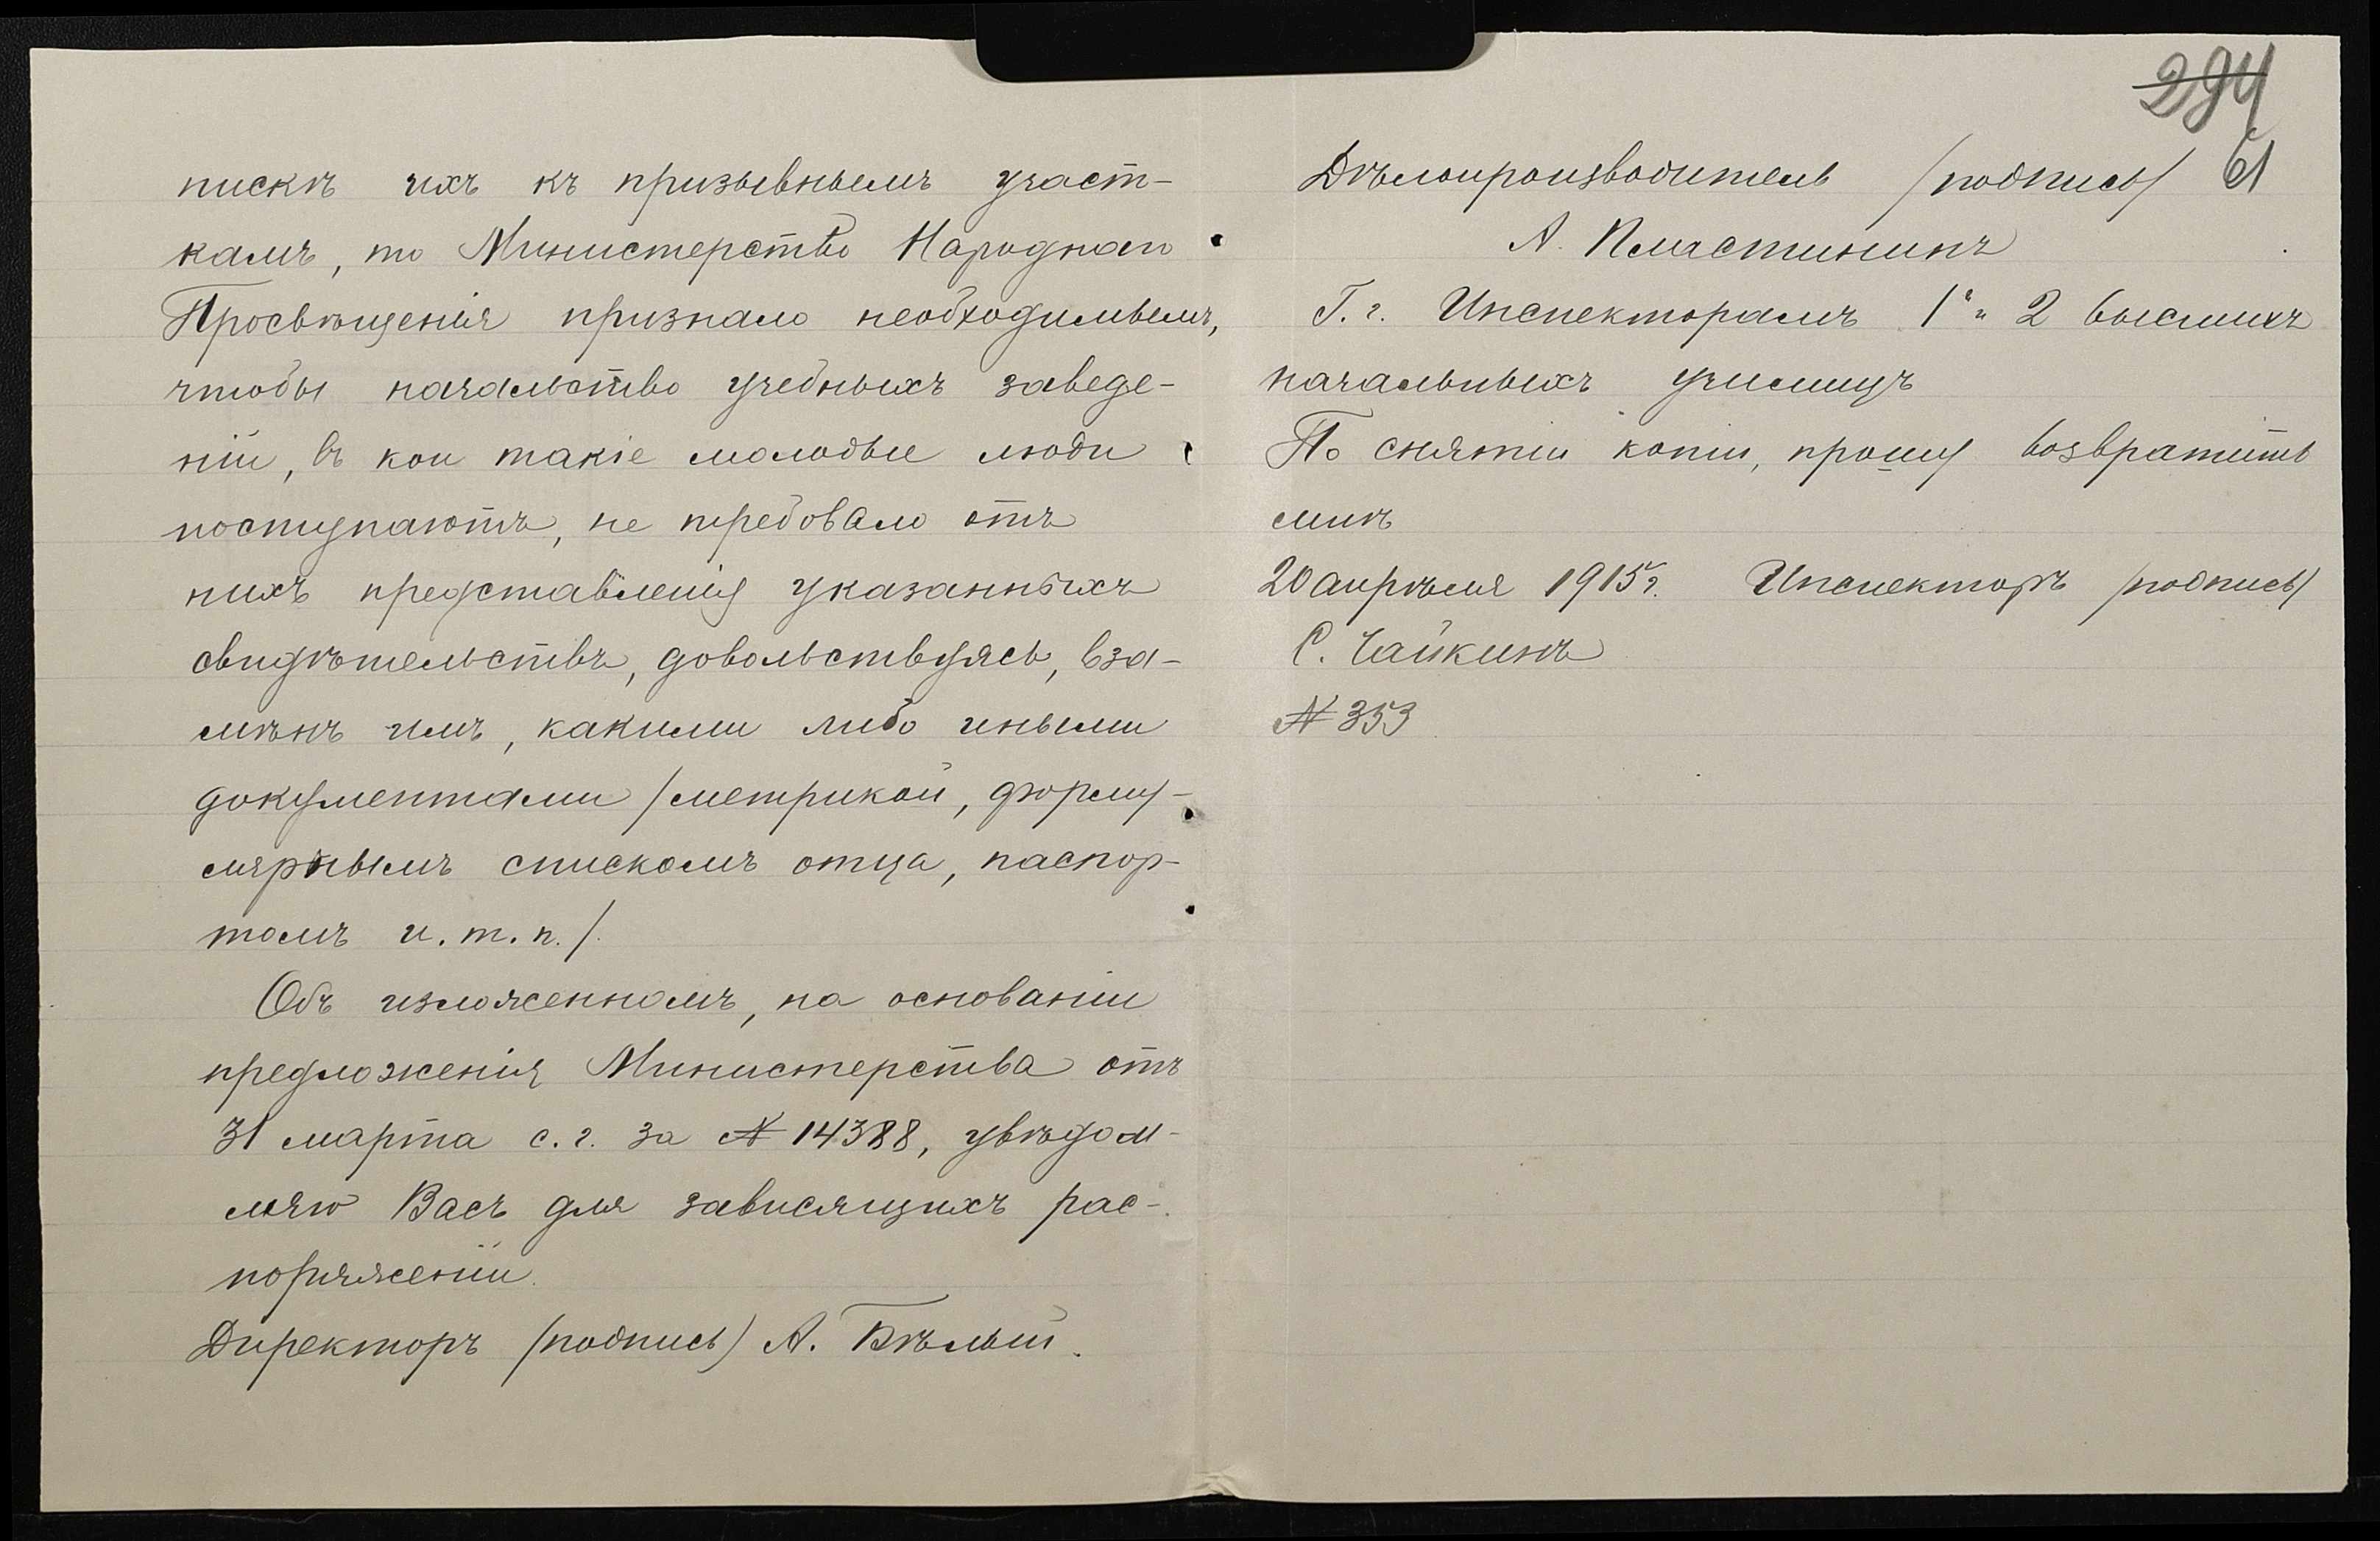 пискѣ ихъ къ призывнымъ участ-
камъ, то Министерство Народнаго
Просвѣщенія признало необходимымъ,
чтобы начальство учебныхъ заведе-
ній, въ кои такіе молодые люди
поступаютъ, не требовало отъ
нихъ представленія указанныхъ
свидѣтельствъ, довольствуясь, вза-
мѣнъ имъ, какими либо иными
документами /метрикой, форму-
лярнымъ спискомъ отца, паспор-
томъ и. т. п./.
Объ изложенномъ, на основаніи
предложенія Министерства отъ
31 марта с. г. за № 14388, увѣдом-
ляю Васъ для зависящихъ рас-
поряженій.
Директоръ /подпись/ А. Бѣлый.
294
61
Дѣлопроизводитель /подпись/
А. Пластининъ
Г. г. Инспекторамъ 1 и 2 высшихъ
начальныхъ училищъ
По снятіи копіи, прошу возвратить
мнѣ
20 апрѣля 1915 г. Инспекторъ /подпись/
С. Чайкинъ
№ 353